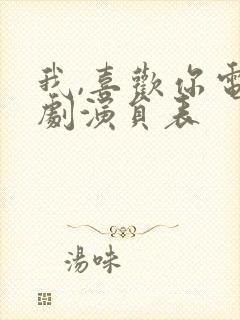 我,喜歡你電
劇演員表
湯味